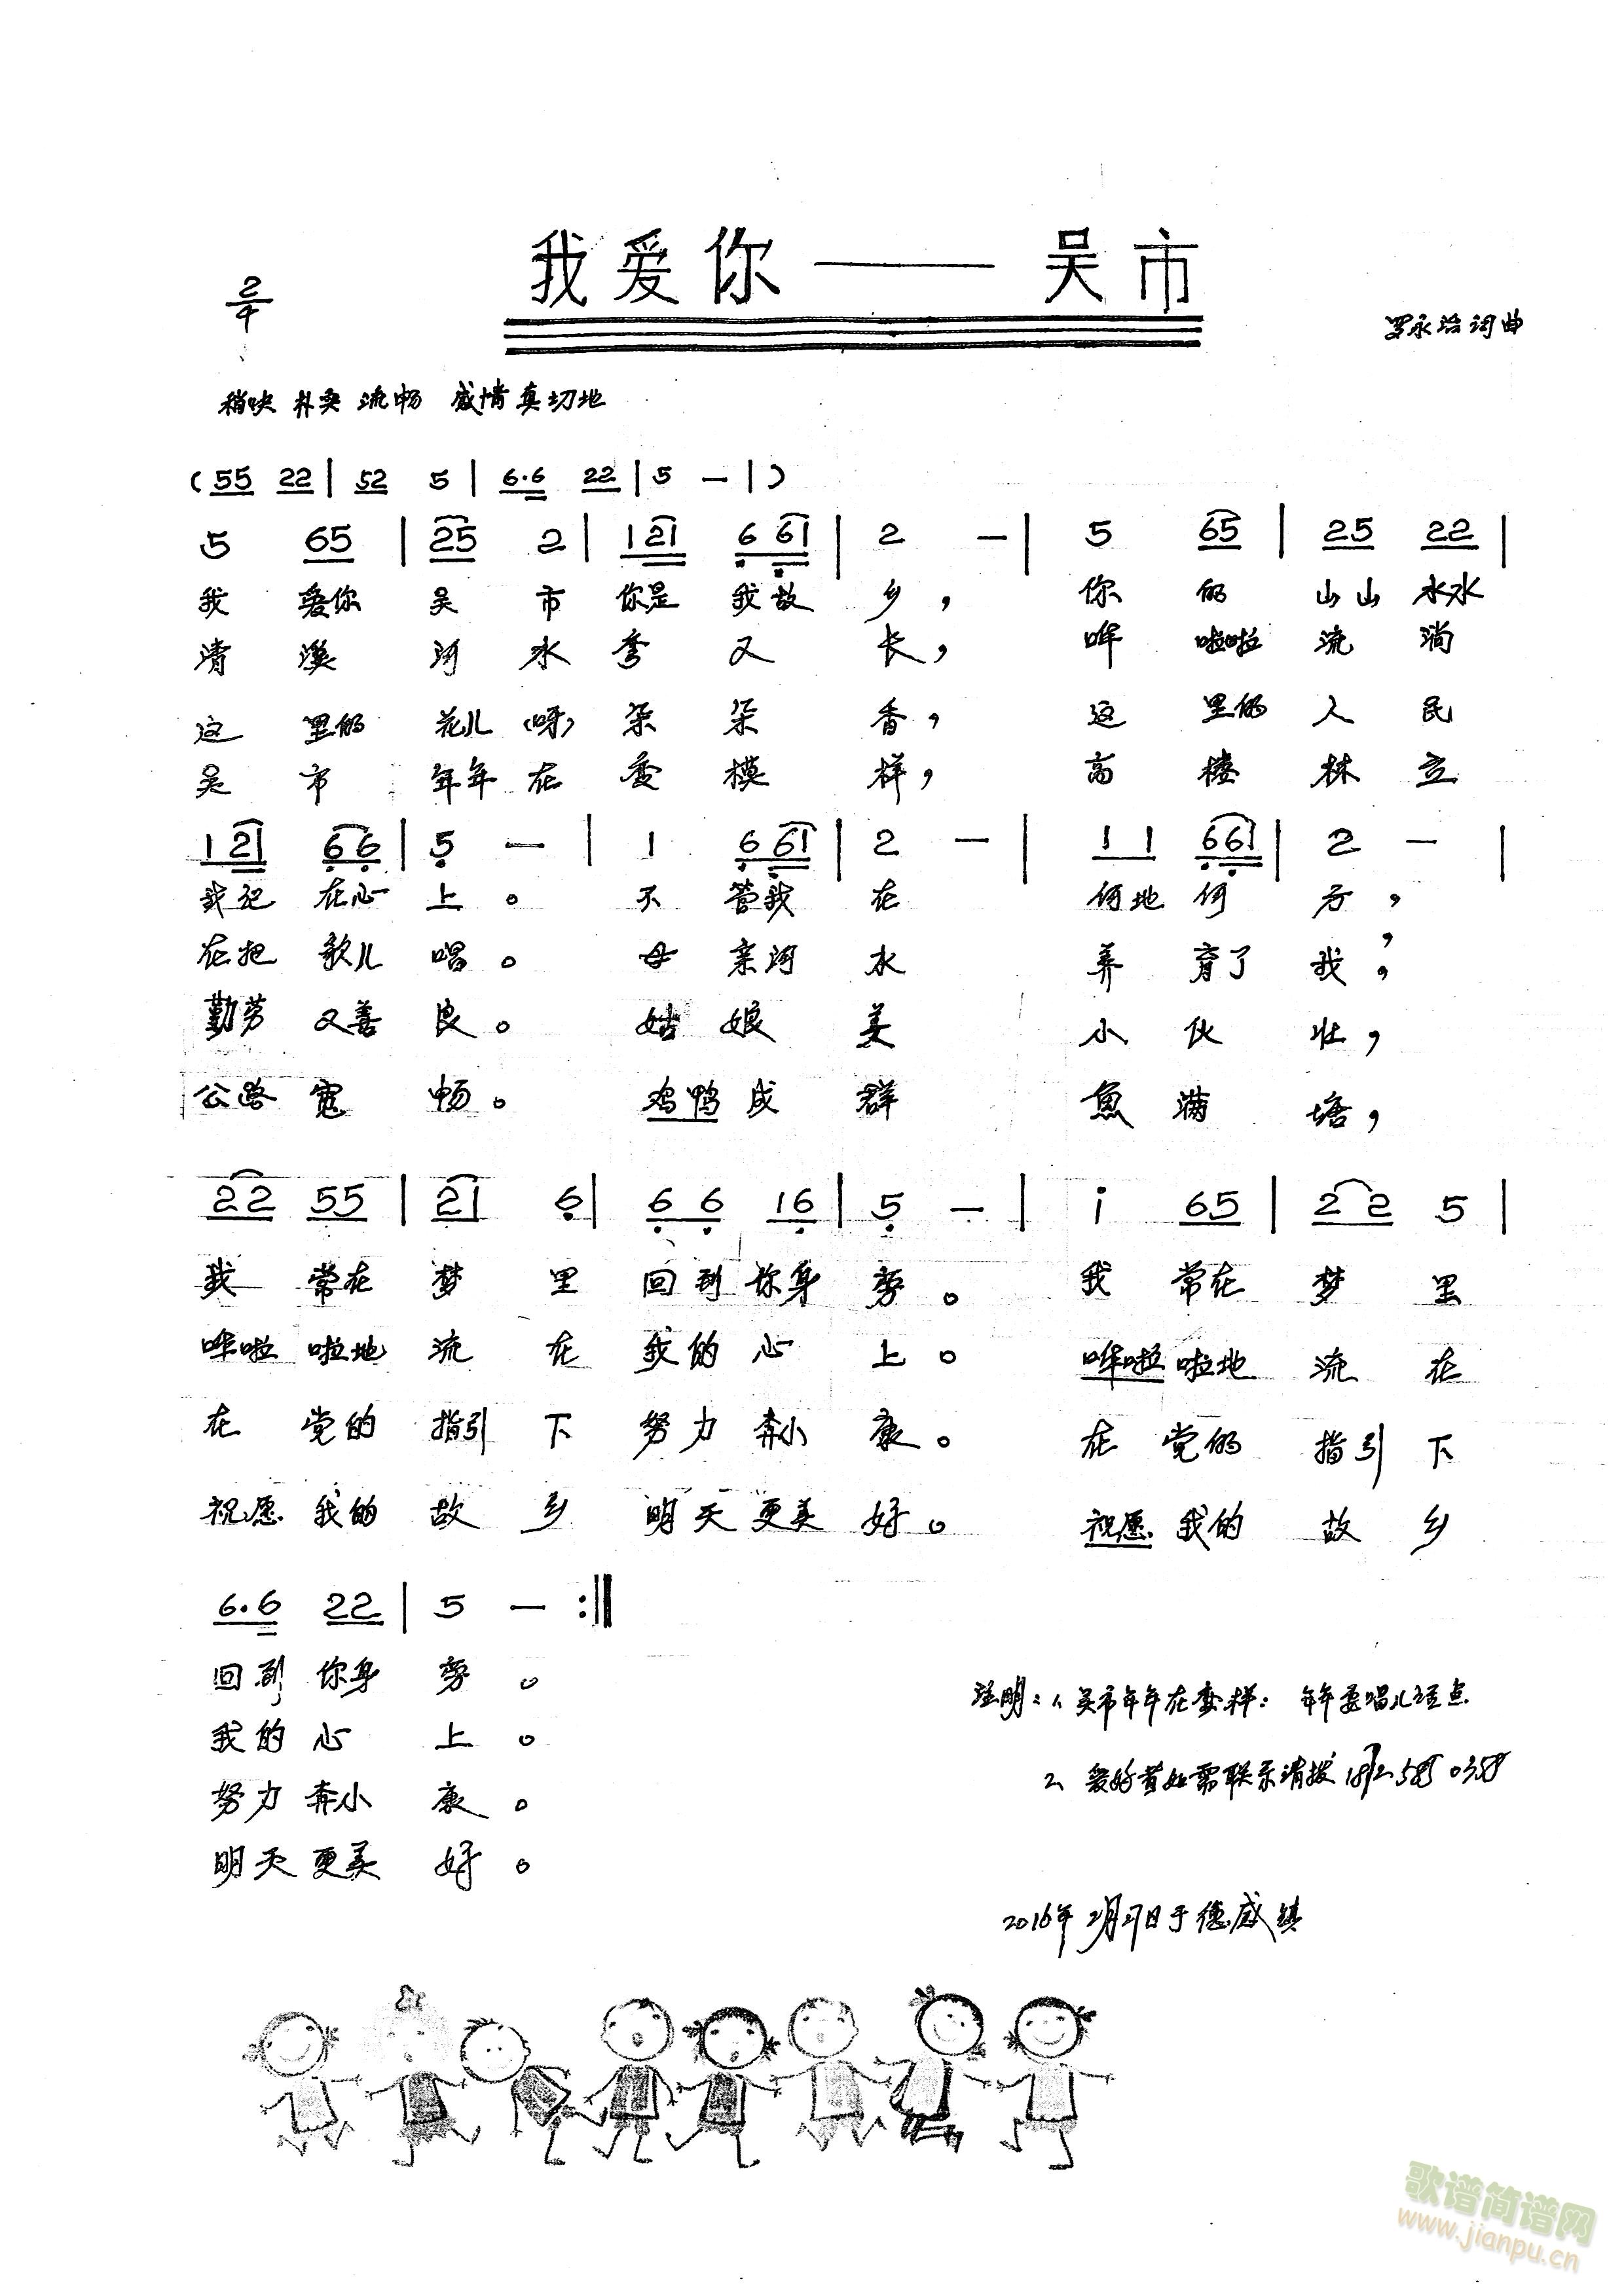 我爱你——吴市
2/4
罗永治词曲
稍快 朴实 流畅 感情真切地
(55 22 | 52 5 | 6·6 22 | 5 — |)
5 65 | 25 2 | 121 661 | 2 — | 5 65 | 25 22 |
我 爱你 吴 市 你是 我故 乡, 你 的 山山 水水
清 溪 河 水 弯 又 长, 哗 啦啦 流 淌
这 里的 花儿 (呀) 朵 朵 香, 这 里的 人 民
吴 市 年年 在 变 模 样, 高 楼 林 立
121 66 | 5 — | 1 661 | 2 — | 11 661 | 2 — |
我记 在心 上。 不 管我 在 何地 何 方,
在把 歌儿 唱。 母 亲河 水 养 育了 我,
勤劳 又善 良。 姑 娘 美 小 伙 壮,
公路 宽 畅。 鸡鸭 成 群 魚 满 塘,
22 55 | 21 6 | 66 16 | 5 — | i 65 | 22 5 |
我 常在 梦 里 回到 你身 旁。 我 常在 梦 里
哗啦 啦地 流 在 我的 心 上。 哗啦 啦地 流 在
在 党的 指引 下 努力 奔小 康。 在 党的 指引 下
祝愿 我的 故 乡 明天 更美 好。 祝愿 我的 故 乡
6·6 22 | 5 — :‖
回到 你身 旁。
我的 心 上。
努力 奔小 康。
明天 更美 好。
注明: 1、吴市年年在变样: 年年要唱儿话点
2、爱好者如需联系请拨
2016年2月7日于德威镇
歌谱简谱网
www.jianpu.cn